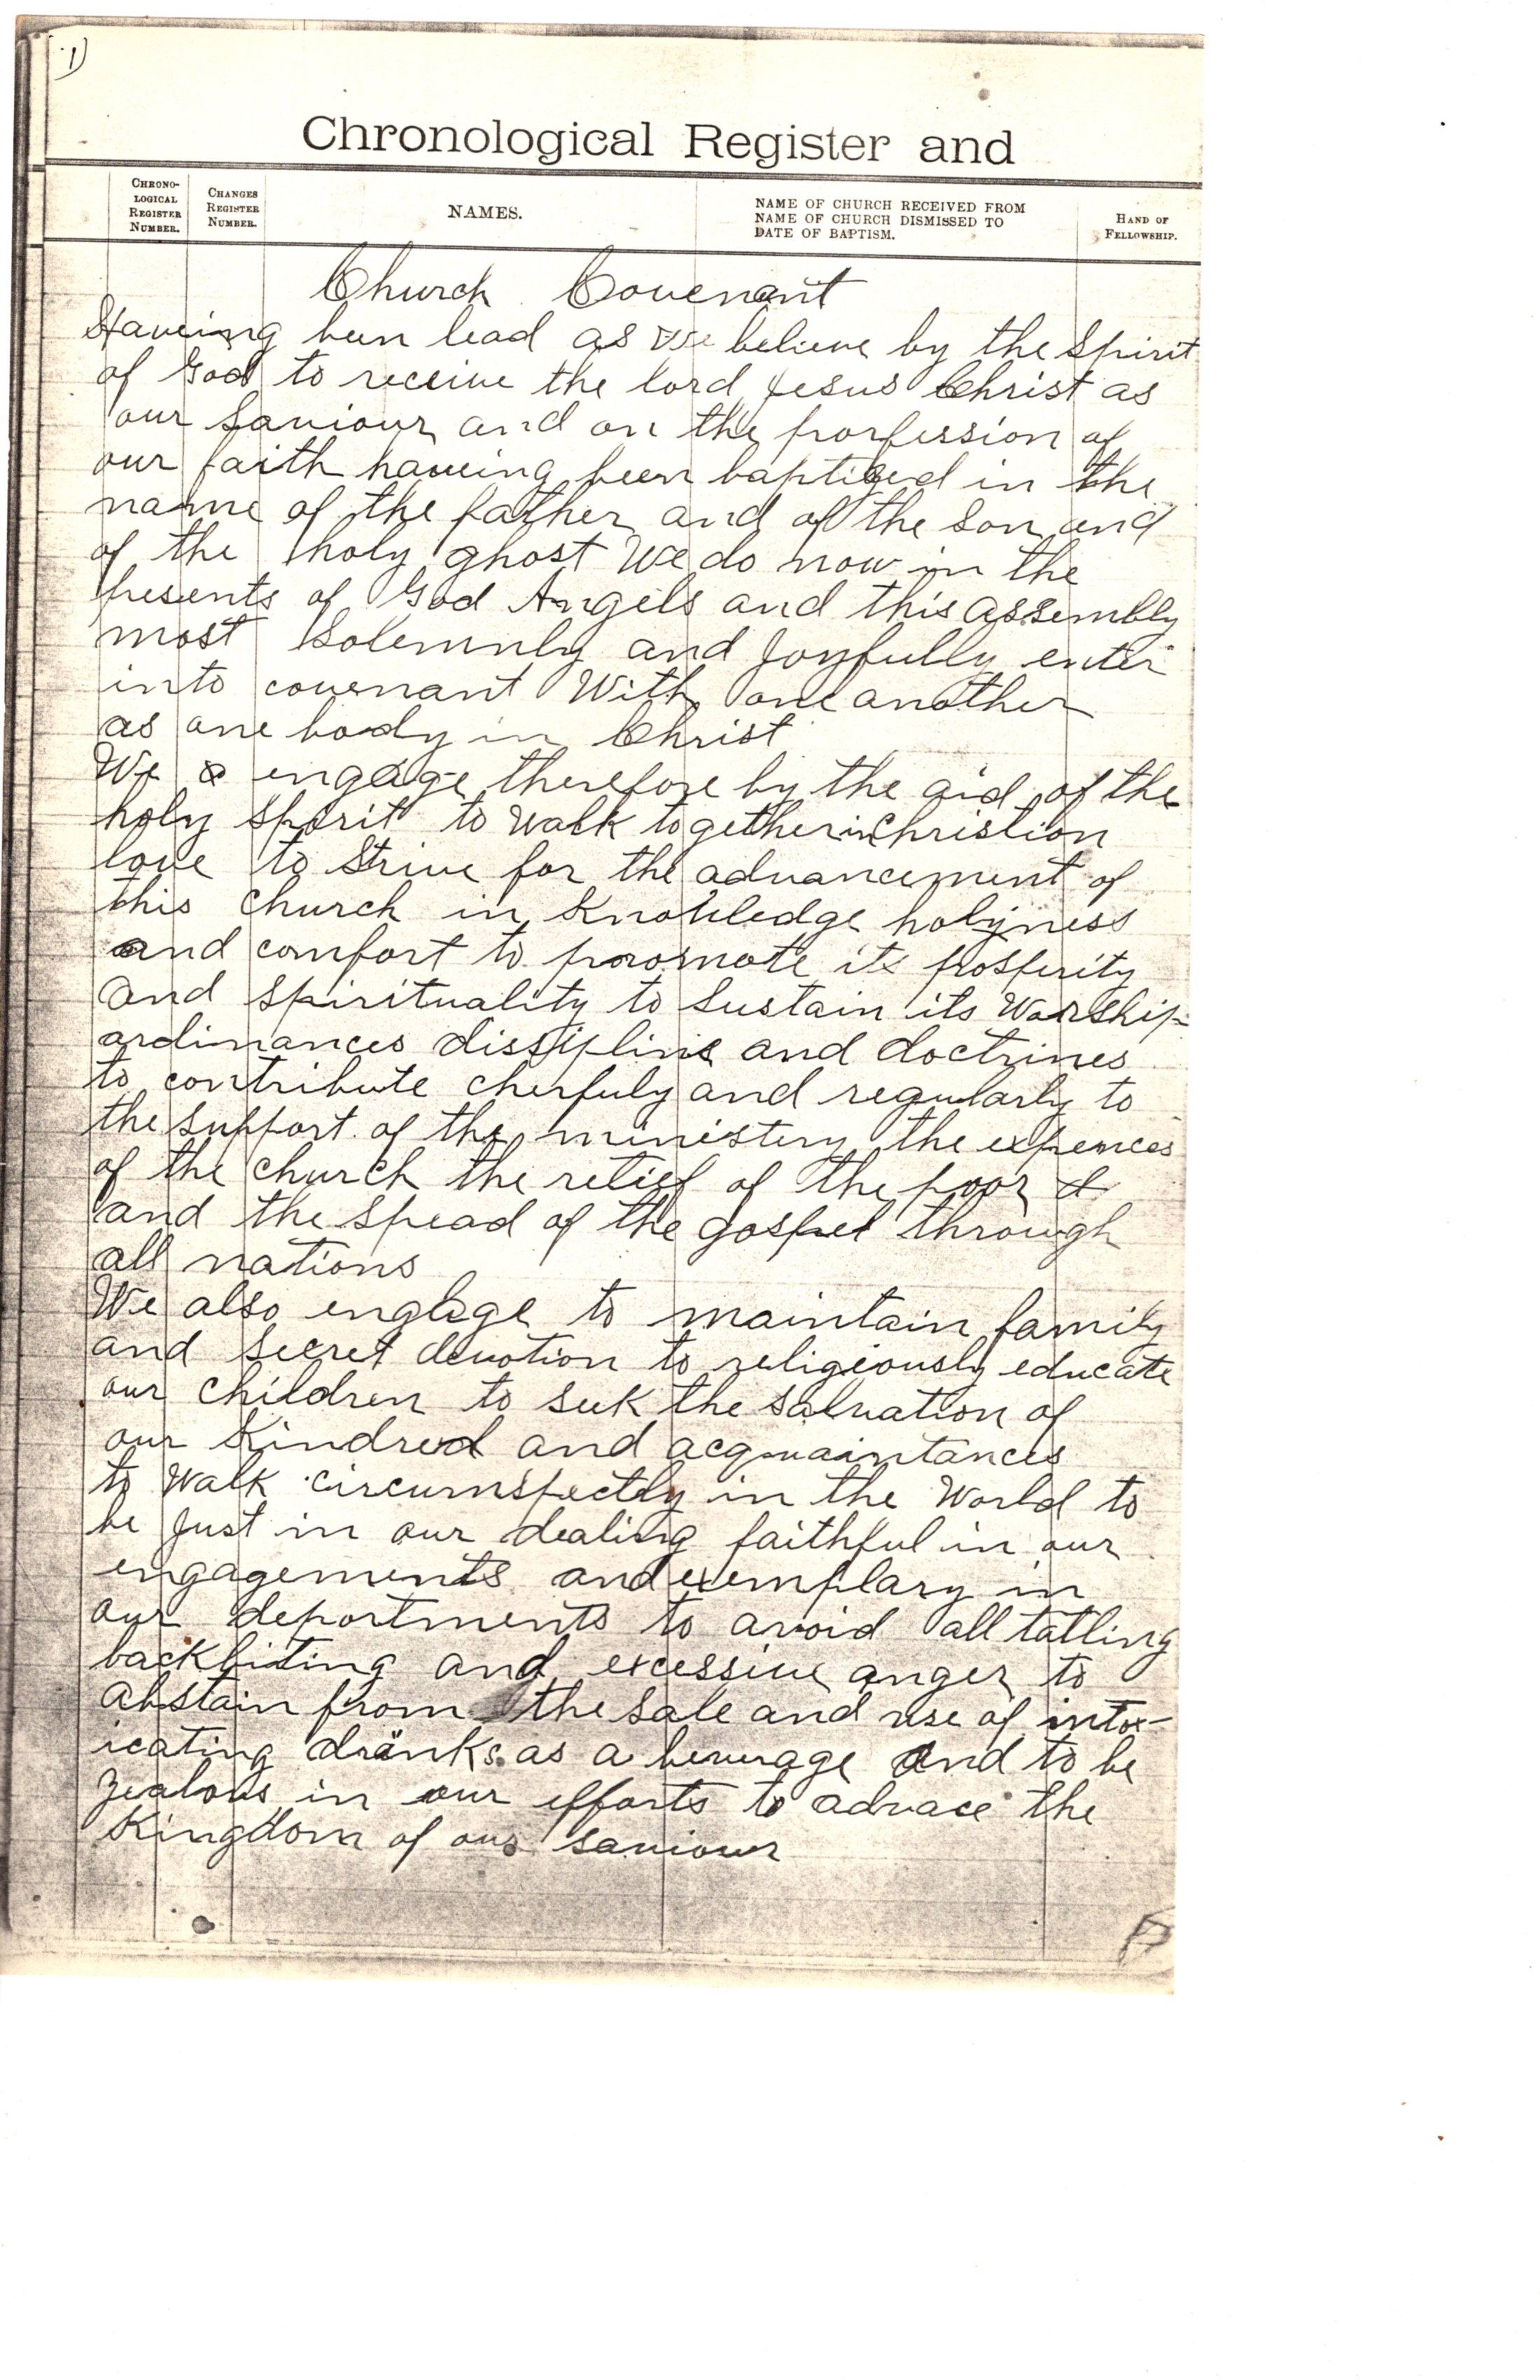 1)
Chronological Register and
CHRONO-
LOGICAL
REGISTER
NUMBER.
CHANGES
REGISTER
NUMBER.
NAMES.
NAME OF CHURCH RECEIVED FROM
NAME OF CHURCH DISMISSED TO
DATE OF BAPTISM.
HAND OF
FELLOWSHIP.
Church Covenant
Haveing been lead as we believe by the Spirit
of God to receive the lord Jesus Christ as
our Saviour and on the profession of
our faith haveing been baptized in the
name of the father and of the son and
of the holy ghost We do now in the
presents of God Angels and this assembly
most Solemnly and Joyfully enter
into covenant With one another
as one body in Christ
We engage therefore by the aid of the
holy Spirit to Walk together in Christion
love to Strive for the advancement of
this Church in Knowledge holyness
and comfort to promote its prosperity
and spirituality to Sustain its Worship
ordinances dissipline and doctrines
to contribute cherfuly and regularly to
the support of the ministery the expences
of the church the relief of the poor &
and the spead of the gospel through
all nations
We also engage to maintain family
and secret devotion to religiously educate
our children to seek the salvation of
our Kindred and acquaintances
to Walk circumspectly in the World to
be Just in our dealing faithful in our
engagements and exemplary in
our deportments to avoid all tatling
backbiting and excessive anger to
abstain from the sale and use of intox-
icating drinks as a beverage and to be
zealous in our efforts to advace the
Kingdom of our saviour